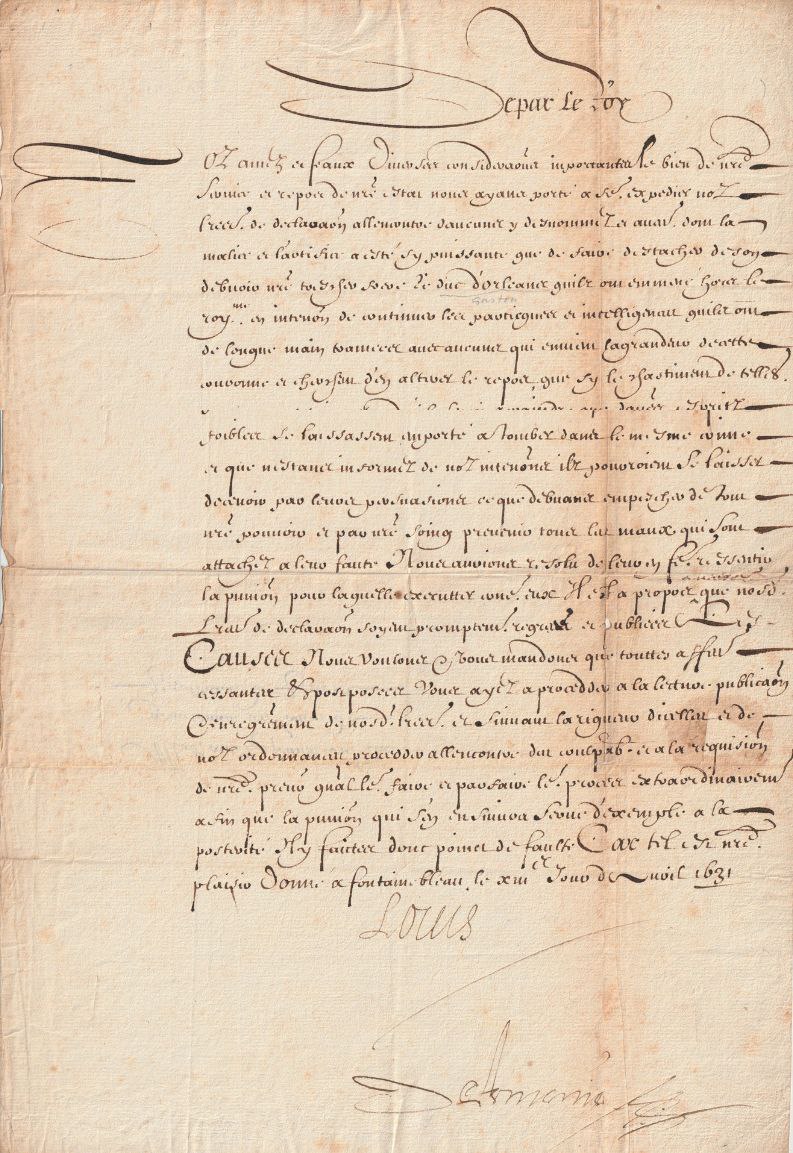 De par le Roy
Noz amez et feaux Diverses consideraons importantes le bien de nre
service et repos de nre estat nous ayans porté a fe. expedier noz
lres. de declaraon allencontre daucuns y desnommez et autres dont la
malice et lartifice a esté sy puissante que de faire destacher de son
debvoir nre tres cher frere le duc d'Orleans quilz ont emmené hors le
Gaston
royme. en intenon de continuer les practicques et intelligences quilz ont
de longue main tramees avec aucuns qui envient la grandeur de cette
couronne et cherchent d'en alterer le repos, que sy le chastiment de telles
espritz
foibles se laissassent emporté a tomber dans le mesme crime
et que nestans informez de noz intenons ilz pourroient se laisser
decevoir par leurs persuasions ce que debvans empescher de tout
nre pouvoir et par nre soing prevenir tous les maux qui sont
attachez a leur faute Nous avions resolu de leur en fe. ressentir
la punion pour laquelle executter cone. eux Il est a propos que nosd.
Lres de declaraon soyent promptemt. regrees et publiees A ces
Causes Nous voulons & vous mandons que touttes affaires
cessantes & postposees Vous ayez a procedder a la lecture publicaon
& enregrement de nosd. lres. et suivant la rigueur dicelles et de
noz ordonnances procedder allencontre des coulpab. et a la requision
de nre. preur gnal le. faire et parfaire le. proces extraordinairement
afin que la punion qui sen ensuivra serve d'exemple a la
posterité Ny faictes donc poinct de faulte Car tel est nre.
plaisir Donné a fontainebleau, le xiiier Jour d'Avril 1631
Louis
De Lomenie